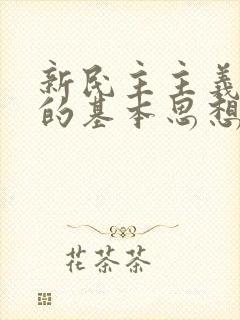 新民主主义
的基本思想
花茶茶